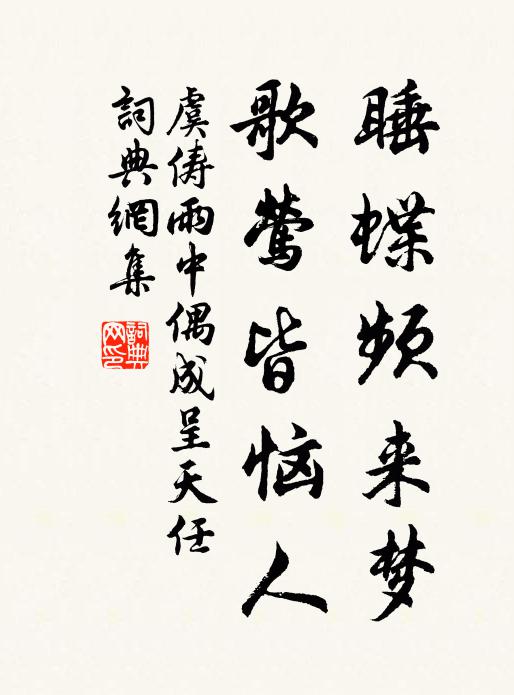 睡蝶频来梦
歌莺皆恼人
虞儔雨中偶成呈天任
詞典網集
詞典网印